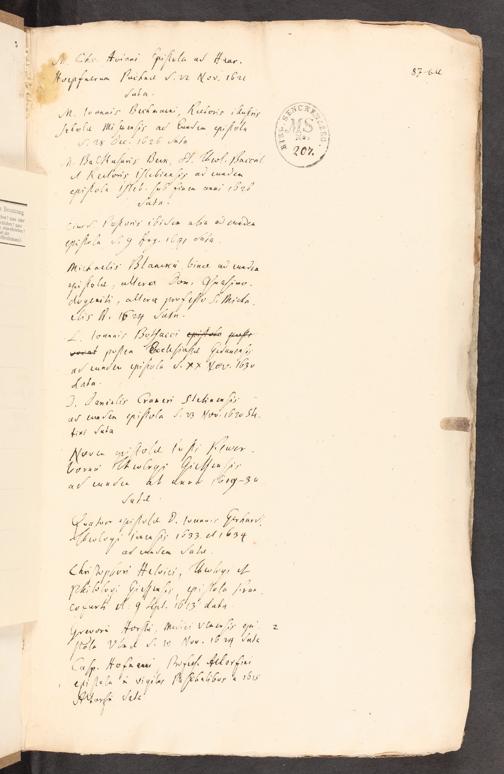 M. Chr. Avieni Epistola ad Henr.
Hoepfnerum d. 22 Nov. 1621
data.
M. Joannis Rectoris
Scholae ad eundem epistola
d. 28 Dec. 1626 data
M. Balthasaris Theol. Baccal.
et Rectoris Islebiensis ad eundem
epistola Isleb. sub finem anni 1626
data.
Pastoris ibidem alia ad eundem
epistola d. 9 data.
Michaelis Blancken binae ad eundem
epistolae, altera Dom. Quasimo-
dogeniti, altera profesto S. Micha-
elis A. 1624 datae.
L. Joannis Botsacci
postea Ecclesiastae Gedanensis
ad eundem epistola d. XX Nov. 1630
data.
D. Danielis Crameri Stetinensis
ad eundem epistola d. 23 Nov. 1620 Ste-
tini data
Novem epistolae Justi Fewer-
bornii Theologi Giessensis
ad eundem ab anno 1619-30
datae
Quatuor epistolae D. Joannis Gerhardi
Theologi Jenensis 1633 et 1634
ad eundem datae.
Christophori Helvici, Theologi et
Philologi Giessensis, epistola Fran-
cofurti d. 9 Sept. 1613 data
Gregorii Horstii, Medici Ulmensis epi-
stola Ulmae d. 10 Nov. 1624 data
Casp. Hofmanni, Profess. Altorfini
epistola in vigiliis Paschalibus a 1615
Altorfii data
87-64
BIBL. SENCKENBERG
MS
207.
2